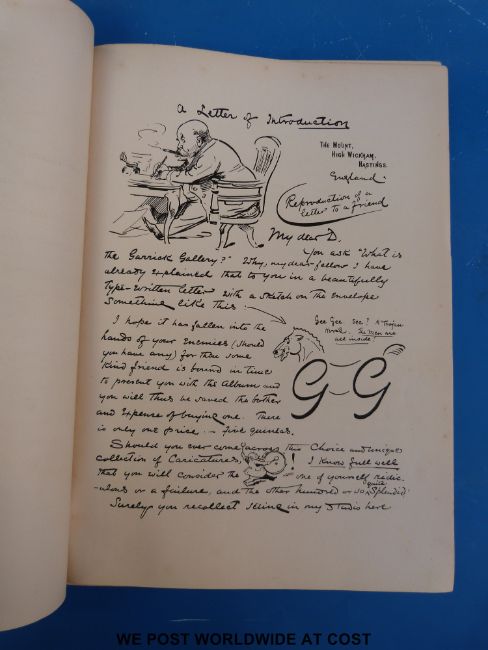 A Letter of Introduction
THE MOUNT,
HIGH WICKHAM,
HASTINGS.
England.
Reproduction of a
letter to a friend
My dear D.
You ask "What is
the Garrick Gallery?" Why, my dear fellow I have
already explained that to you in a beautifully
type-written letter with a sketch on the envelope
something like this
Gee Gee. See? A Trojan
Horse. The men are
all inside!
G-G
I hope it has fallen into the
hands of your enemies (should
you have any) for then some
kind friend is bound in time
to present you with the Album and
you will thus be saved the bother
and expense of buying one. There
is only one price - Five guineas.
Should you ever come across this Choice and unique
collection of Caricatures, ! I know full well
that you will consider the one of yourself redic-
-ulous or a failure, and the other hundred or so quite Splendid.
Surely you recollect in my Studio here
WE POST WORLDWIDE AT COST